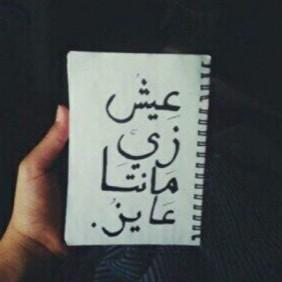 عيش
زي
مانتا
عايز.